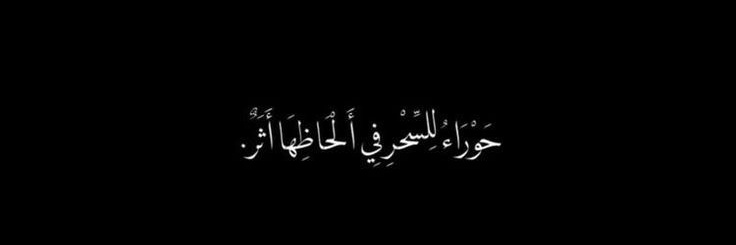 حَوْرَاءُ لِلسِّحْرِ فِي أَلْحَاظِهَا أَثَرٌ.